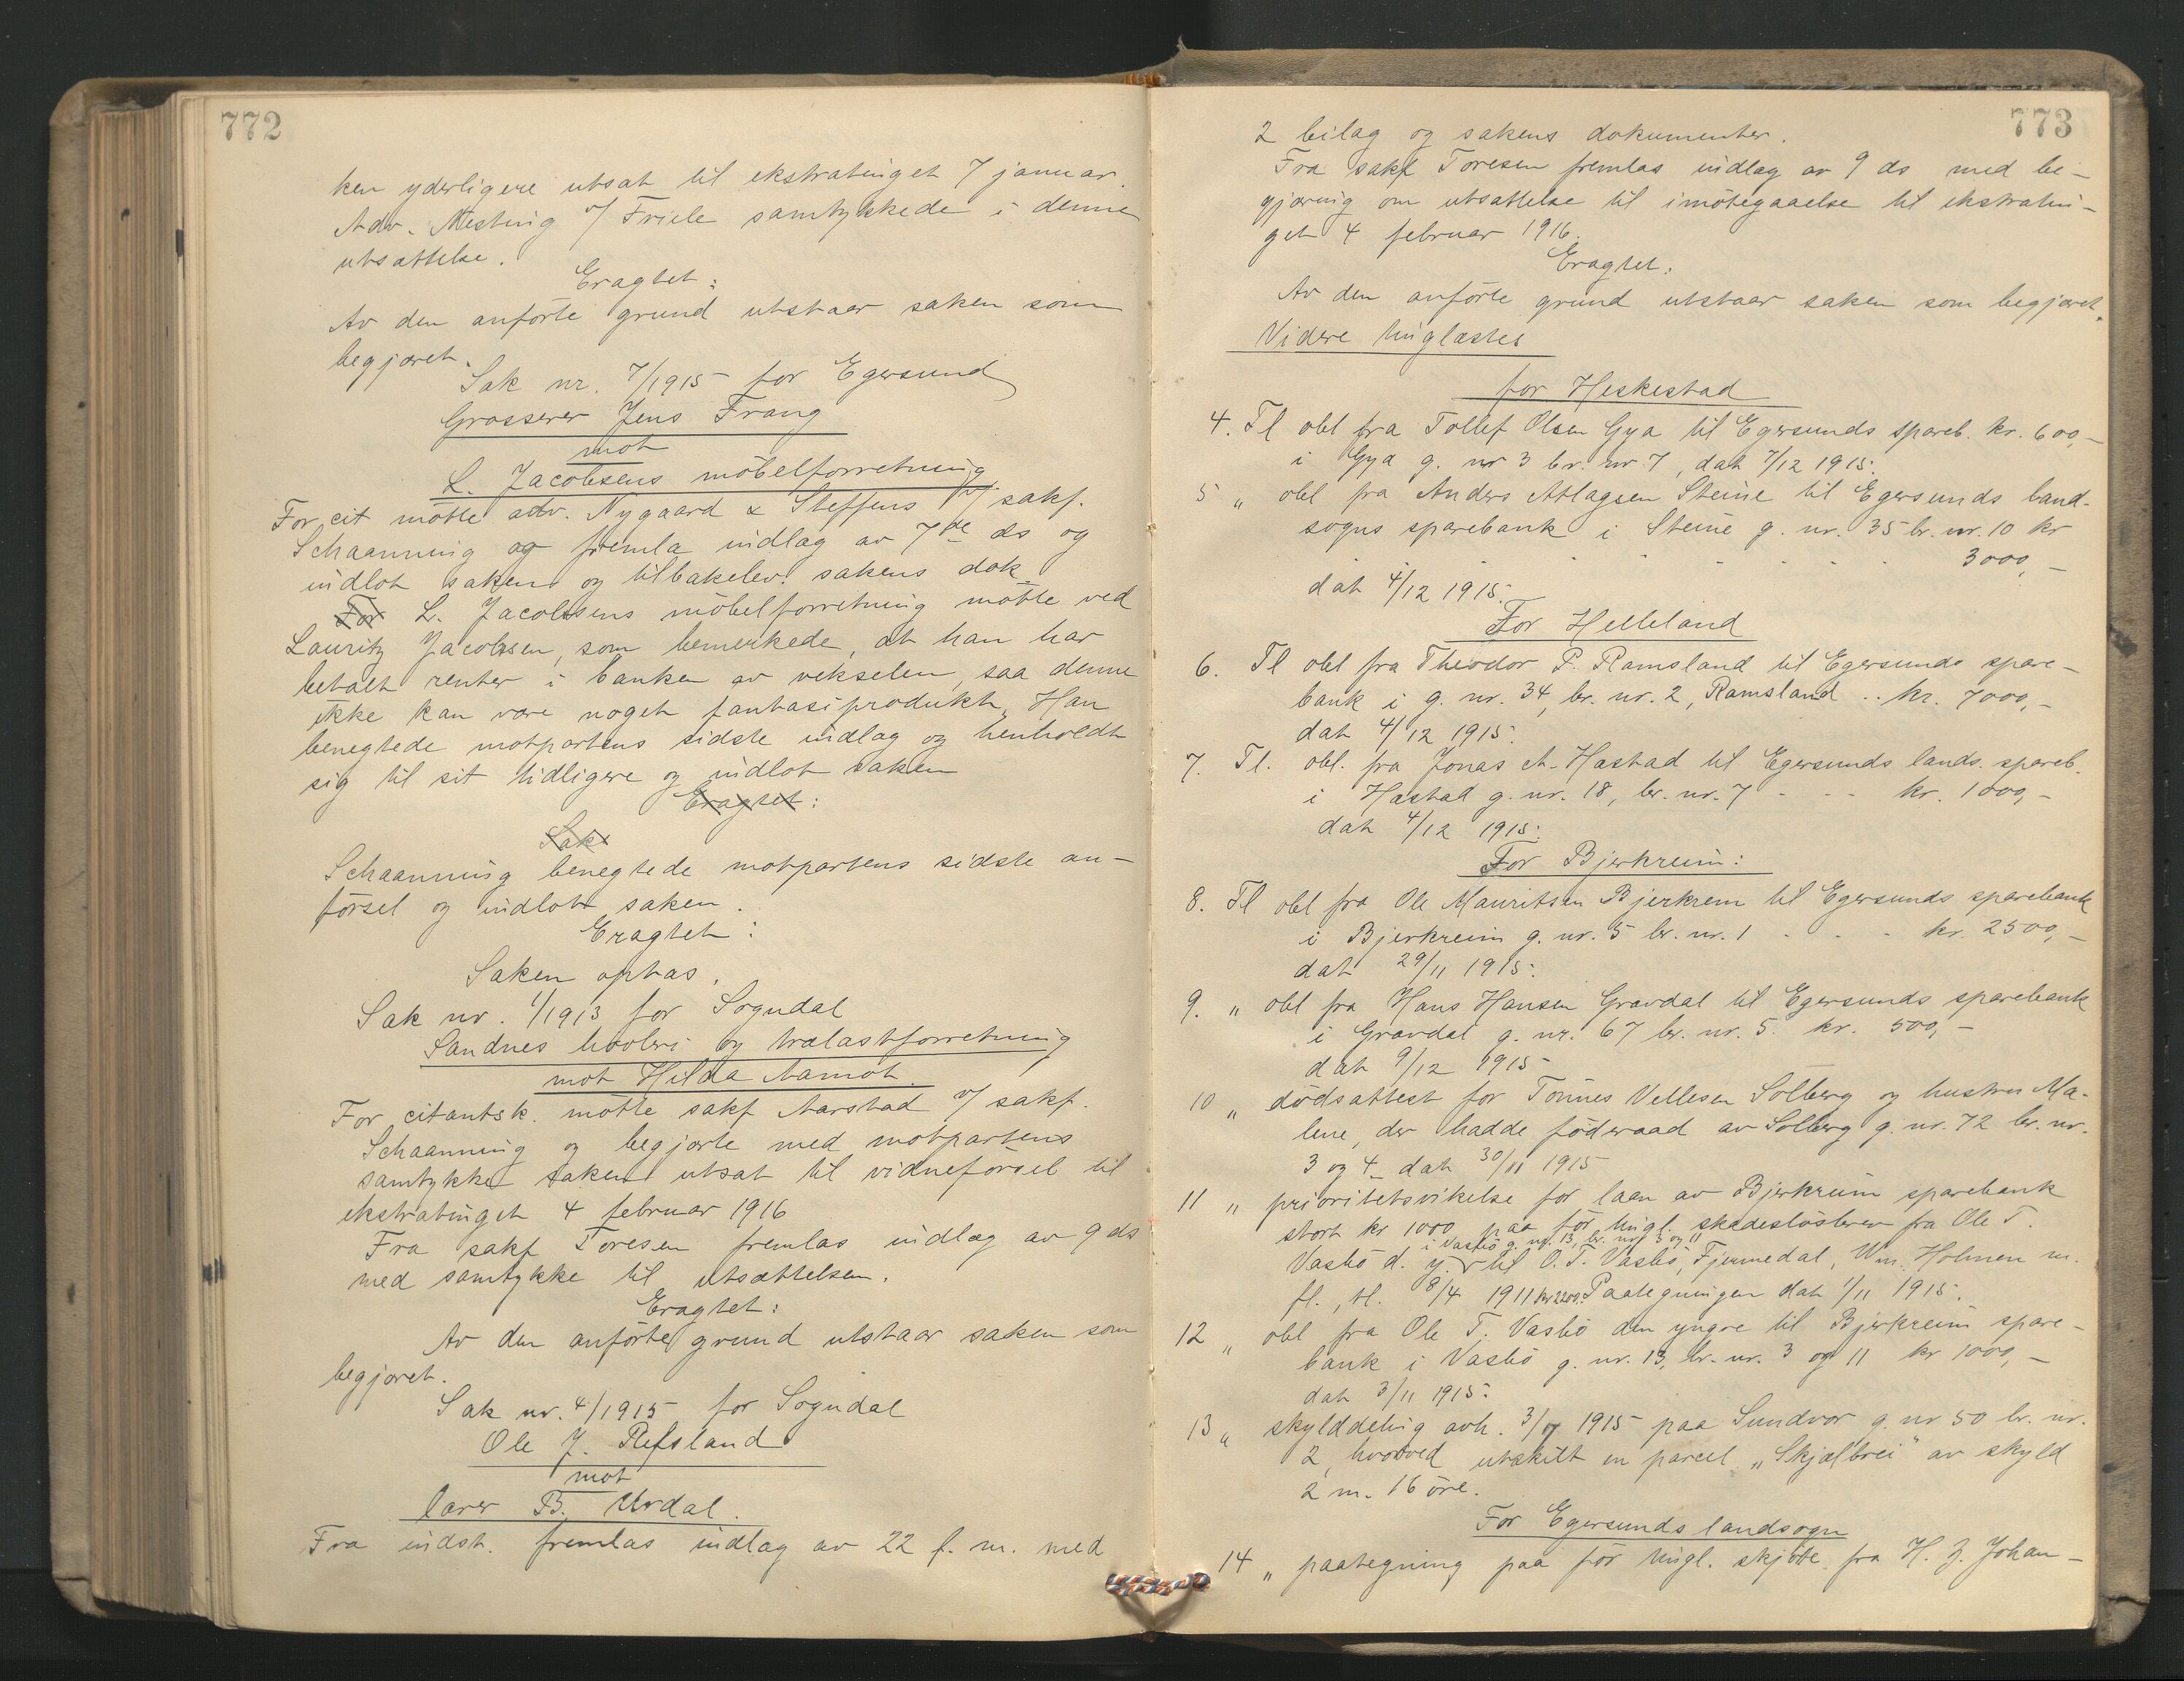 772
ken yderligere utsat til ekstratinget 7 januar.
Adv. Mestring v/ Friele samtykkede i denne
utsættelse.
Eragtet:
Av den anförte grund utstaar saken som
begjæret.
Sak nr. 7/1915 for Egersund
Grosserer Jens Frang
mot
L. Jacobsens möbelforretning
For cit mötte adv. Nygaard & Steffens v/ sakf.
Schaanning og fremla indlag av 7de ds og
indlot saken og tilbakelev. sakens dok.
For L. Jacobsens möbelforretning mötte ved
Lauritz Jacobsen, som bemerkede, at han har
betalt renter i banken av vekselen, saa denne
ikke kan være noget fantasiprodukt. Han
benegtede motpartens sidste indlag og henholdt
sig til sit tidligere og indlot saken
Eragtet:
Sak
Schaanning benegtede motpartens sidste an-
försel og indlot saken.
Eragtet:
Saken optas.
Sak nr. 1/1913 for Sogndal
Sandnes hövleri og trælastforretning
mot Hilda Aamot.
For citantsk. mötte sakf Aarstad v/ sakf.
Schaanning og begjærte med motpartens
samtykke saken utsat til vidneförsel til
ekstratinget 4 februar 1916
Fra sakf Toresen fremlas indlæg av 9 ds
med samtykke til utsættelsen.
Eragtet:
Av den anförte grund utstaar saken som
begjæret.
Sak nr. 4/1915 for Sogndal
Ole J. Refsland
mot
lærer B. Urdal.
Fra indst. fremlas indlag av 22 f. m. med
773
2 bilag og sakens dokumenter.
Fra sakf Toresen fremlas indlag av 9 ds med be-
gjæring om utsættelse til imötegaaelse til ekstratin-
get 4 februar 1916.
Eragtet:
Av den anförte grund utstaar saken som begjæret.
Videre tinglæstes
for Heskestad
4. Tl obl fra Tollef Olsen Gya til Egersunds spareb. kr. 600,-
i Gya g. nr 3 br. nr 7, dat 7/12 1915.
5 " obl fra Anders Atlagsen Steine til Egersunds land-
sogns sparebank i Steine g. nr. 35 br. nr. 10 kr
3000,-
dat 4/12 1915.
For Helleland
6. Tl obl fra Theodor P. Ramsland til Egersunds spare-
bank i g. nr. 34, br. nr. 2, Ramsland .. kr. 7000,-
dat 4/12 1915.
7. Tl. obl. fra Jonas A. Hæstad til Egersunds lands. spareb.
i Hæstad g. nr. 18, br. nr. 7 - - - kr. 1000,-
dat 4/12 1915.
For Bjerkreim:
8. Tl obl fra Ole Mauritsen Bjerkrem til Egersunds sparebank
i Bjerkreim g. nr. 5 br. nr. 1 - - - kr. 2500,-
dat 29/11 1915.
9. " obl fra Hans Hansen Gravdal til Egersunds sparebank
i Gravdal g. nr. 67 br. nr. 5. kr. 500,-
dat 9/12 1915
10 " dödsattest for Tönnes Vellesen Solberg og hustru Ma-
lene, der hadde föderaad av Solberg g. nr. 72 br. nr.
3 og 4 dat 30/11 1915
11 " prioritetsvikelse for laan av Bjerkreim sparebank
stort kr 1000 paa för tingl. skadeslösbrev fra Ole T.
i Vasbö g. nr. 13, br. nr. 3 og 11
Vasbö d. y. til O. T. Vasbö, Fjermedal, Wm. Holmen m.
fl., tl. 8/4 1911 kr 2200. Paategningen dat 1/11 1915.
12 " obl fra Ole T. Vasbö den yngre til Bjerkreim spare-
bank i Vasbö g. nr. 13, br. nr. 3 og 11 kr 1000,-
dat 3/11 1915.
13 " skylddeling avh. 3/7 1915 paa Sundvor g. nr 50 br. nr.
2, hvorved utskilt en parcel "Skjælbrei" av skyld
2 m. 16 öre.
For Egersunds landsogn
14 " paategning paa för tingl. skjöte fra H. J. Johan-